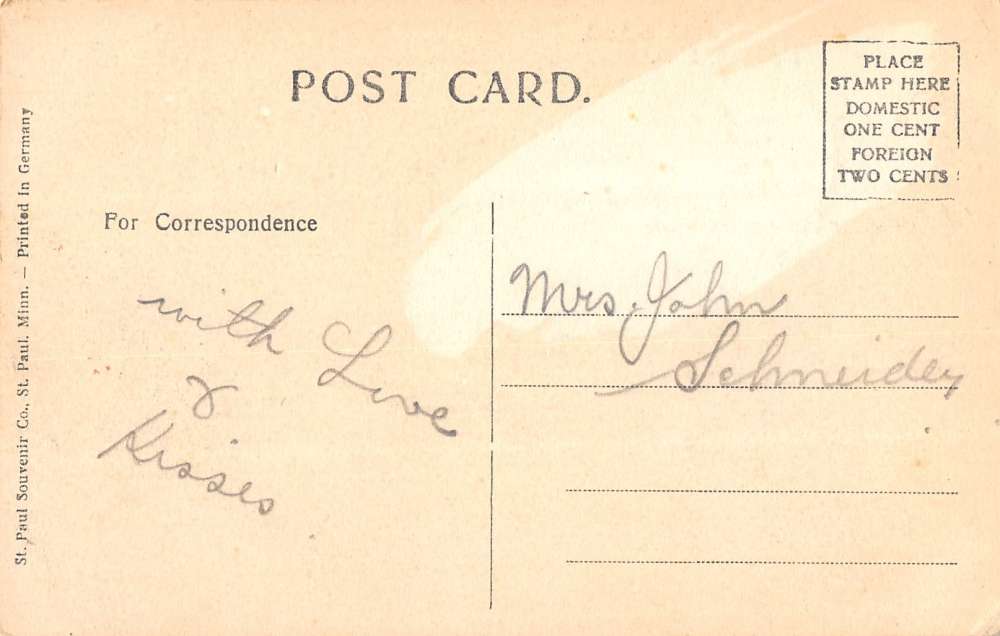 POST CARD.
PLACE
STAMP HERE
DOMESTIC
ONE CENT
FOREIGN
TWO CENTS
For Correspondence
with Love
&
Kisses
Mrs. John
Schneider
St. Paul Souvenir Co., St. Paul. Minn. — Printed in Germany